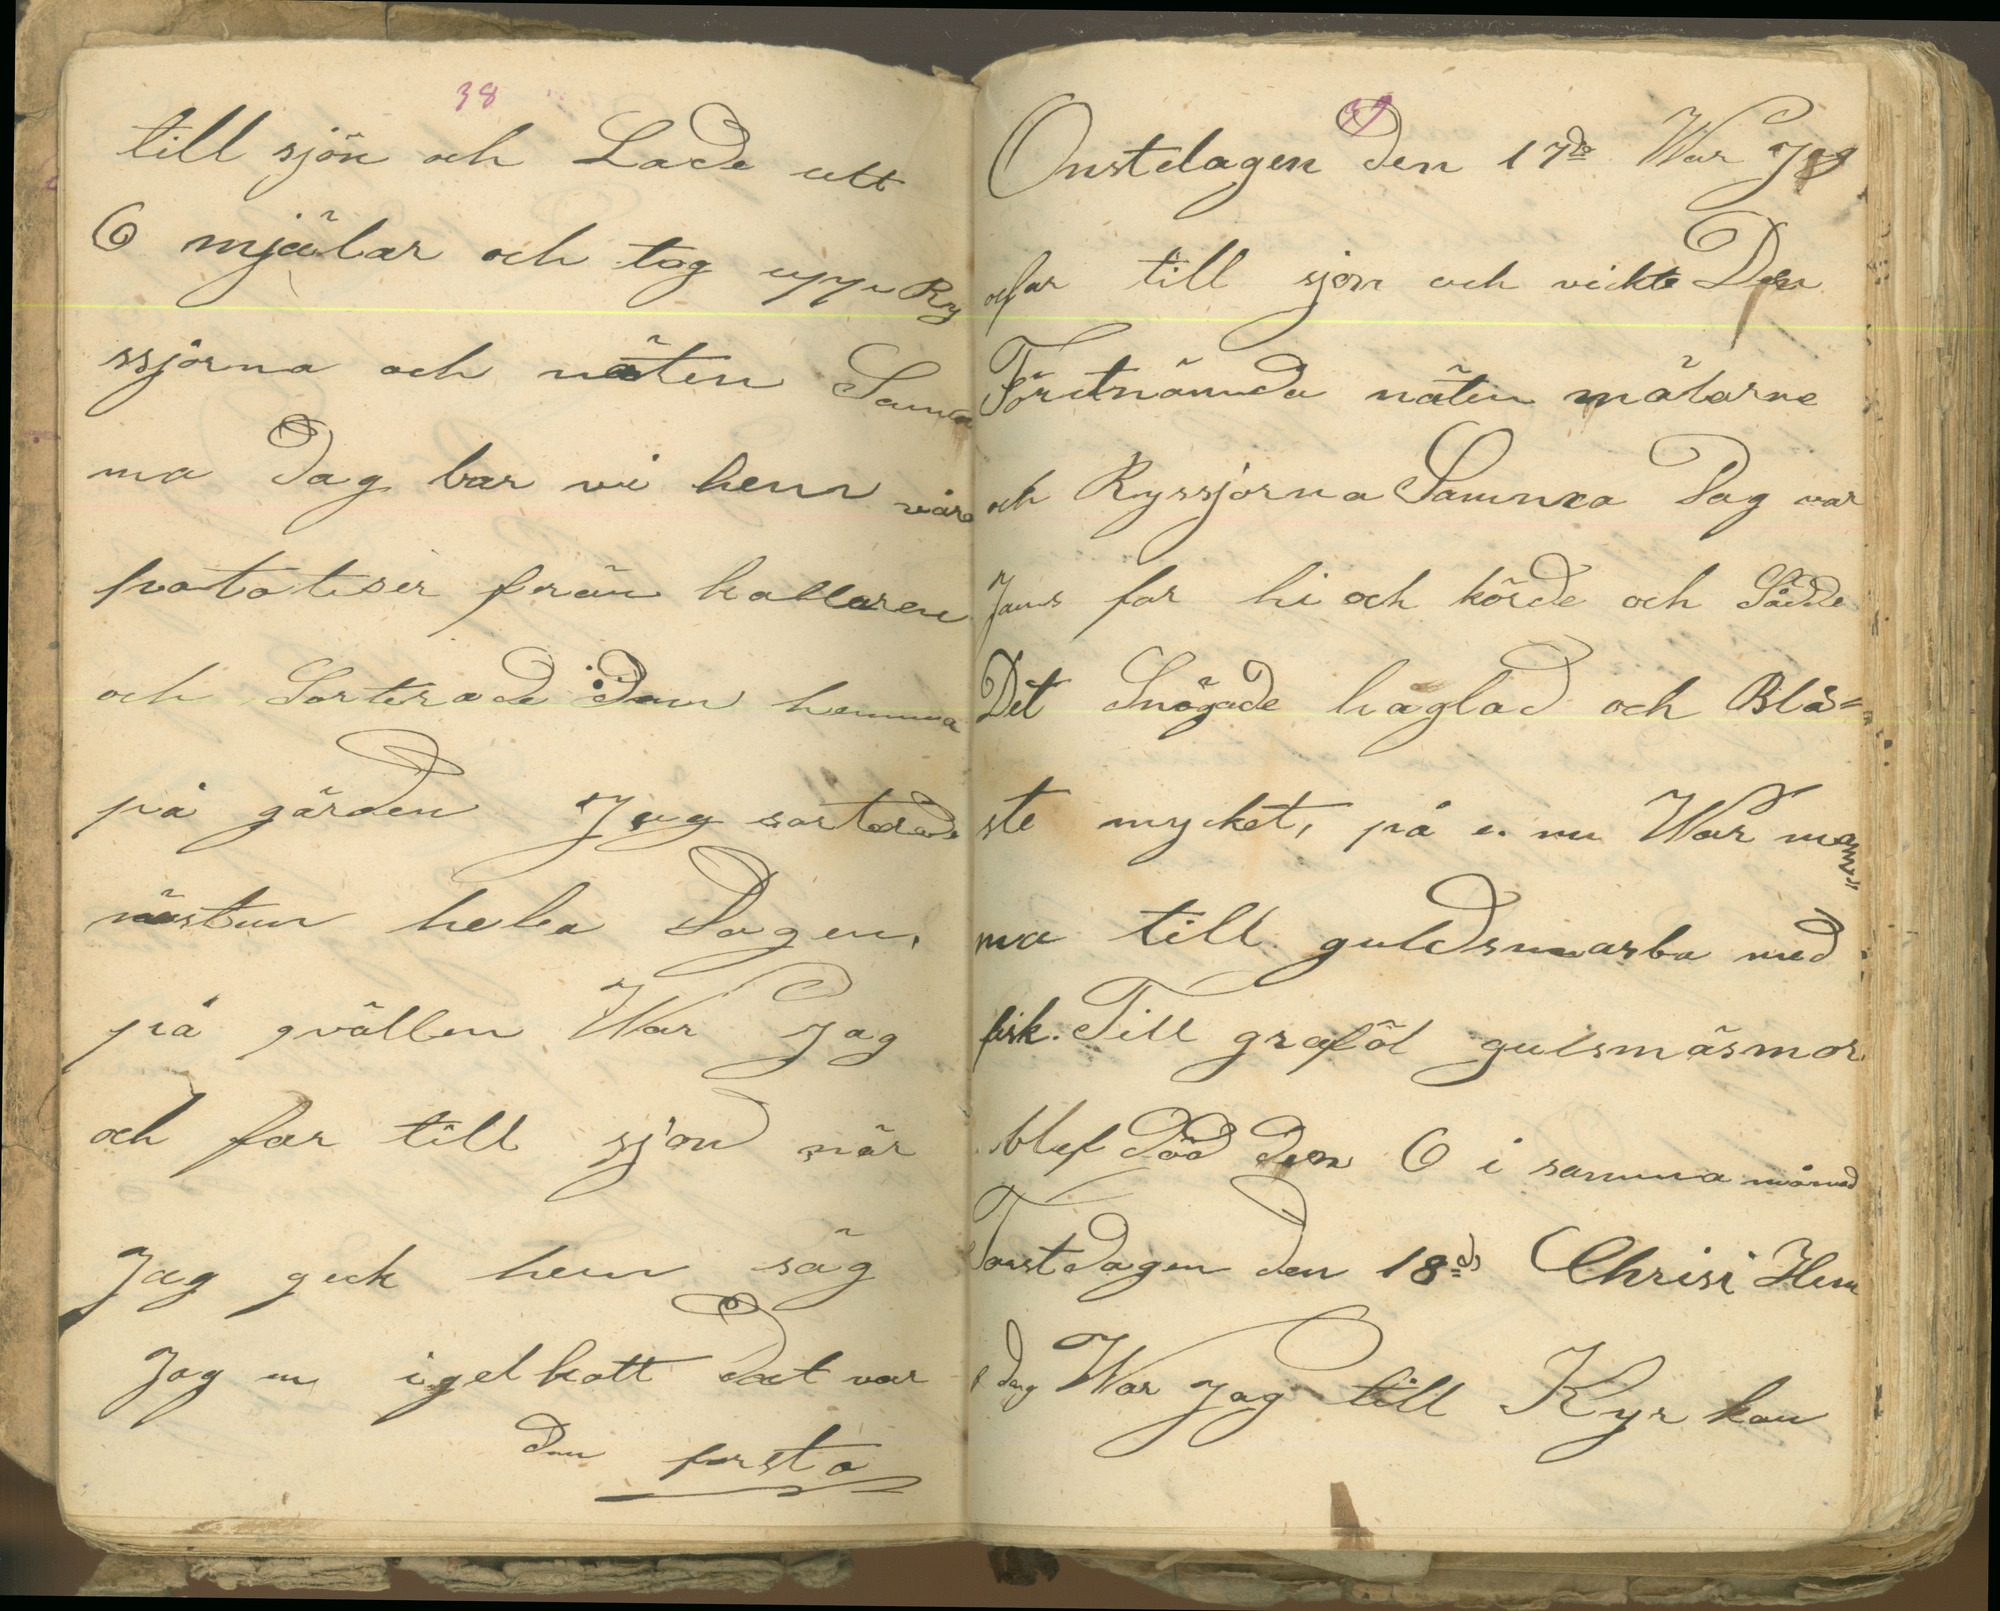 38
till sjön och Lade utt
6 mjälar och tog upp Ry
ssjorna och näten Sam
ma Dag bar vi hem våra
potatiser från kallaren
och Sorterade dem hemma
på gården Jag sorterade
nästan hela Dagen,
på qvällen War Jag
och far till sjön när
Jag geck hem såg
Jag en igelkott Det var
Den forsta
Onstdagen Den 17de War Jag
o far till sjon och vickte Den
Förutnämnda näten mälarne
och Ryssjorna Samma Dag var
far hi och körde och Sådde
Det Snögade haglad och Blå-
ste mycket, på e. m War mam
ma till guldsmasba med
fisk. Till graföl gulsmäsmor
blef död den 6 i samma månad
Torstdagen den 18de Chrisi Him
dag War Jag till Kyrkan